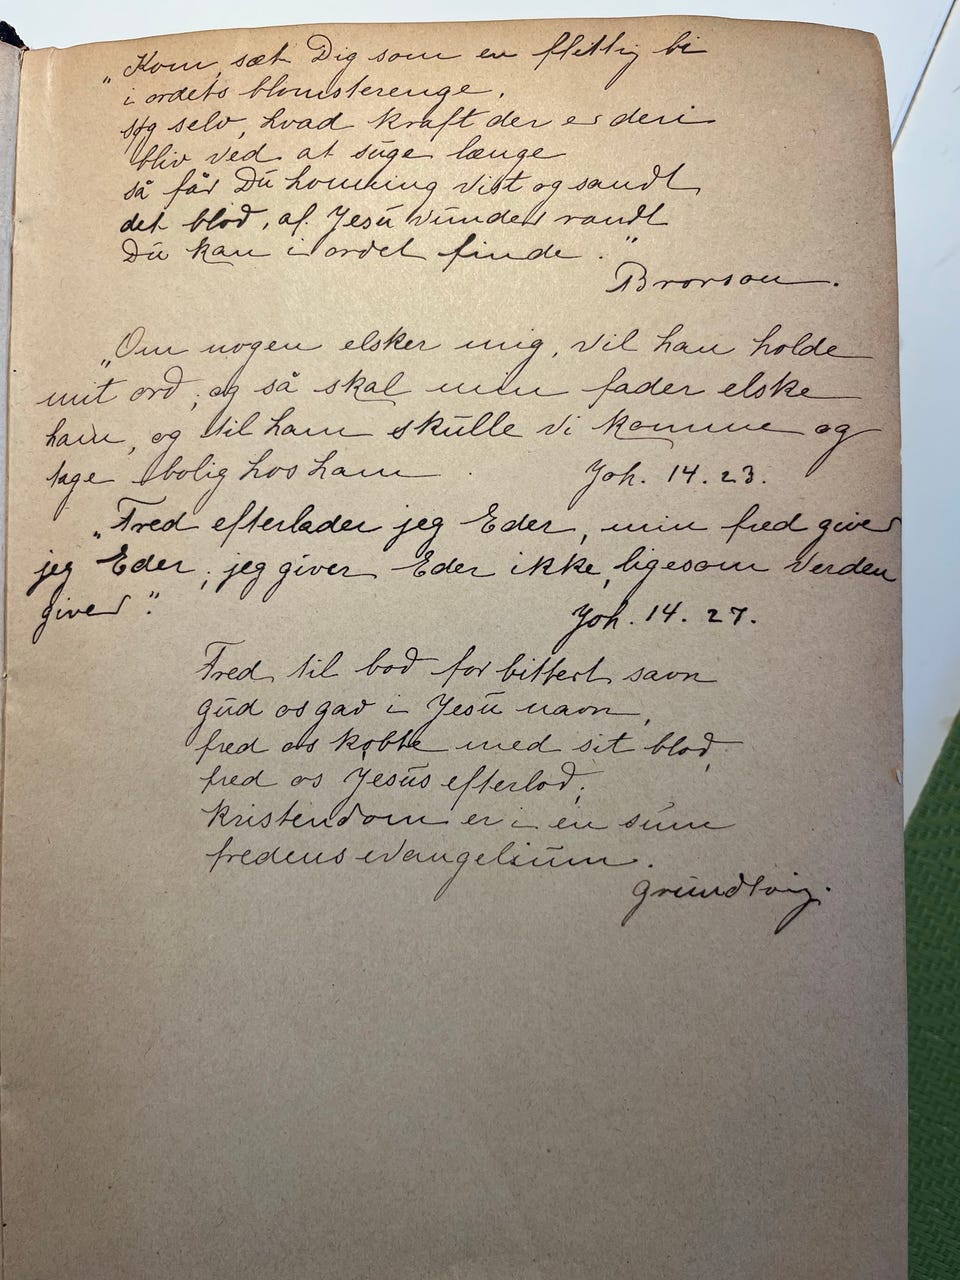 „Kom, sæt Dig som en flittig bi
i ordets blomsterenge,
søg selv, hvad kraft der er deri
bliv ved at suge længe
så får Du honning vist og sandt
det blod, af Jesu vunder randt
Du kan i ordet finde."
Brorson.
„Om nogen elsker mig, vil han holde
mit ord; og så skal min fader elske
ham, og til ham skulle vi komme og
tage bolig hos ham
Joh. 14. 23.
„Fred efterlader jeg Eder, min fred giver
jeg Eder; jeg giver Eder ikke, ligesom Verden
giver."
Joh. 14. 27.
Fred til bod for bittert savn
gud os gav i Jesu navn,
fred os købte med sit blod,
fred os Jesus efterlod;
kristendom er i en sum
fredens evangelium.
Grundtvig.